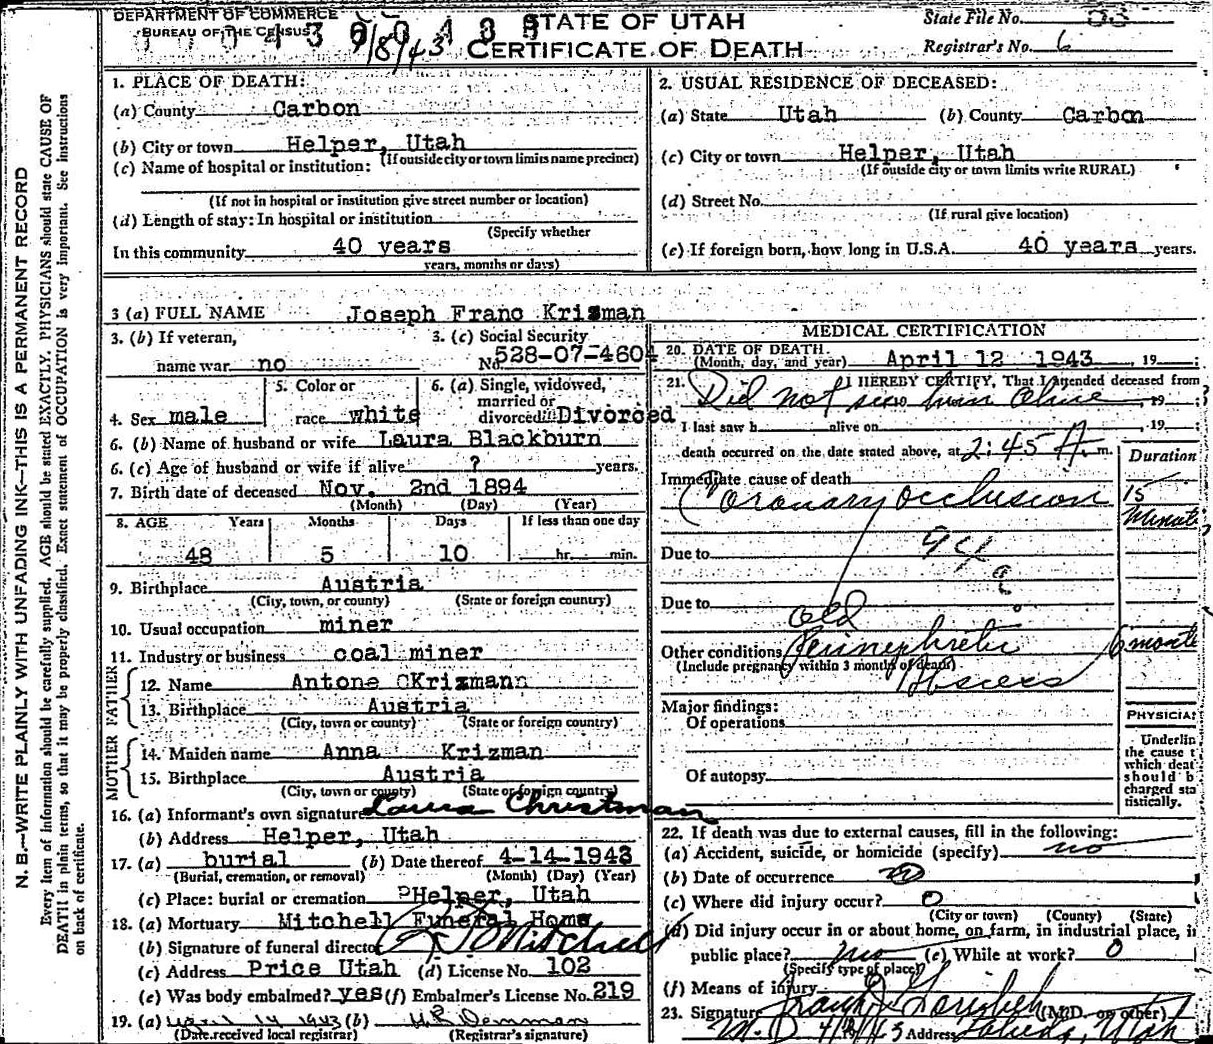 DEPARTMENT OF COMMERCE
BUREAU OF THE CENSUS
STATE OF UTAH
CERTIFICATE OF DEATH
State File No.
Registrar's No. 6
9/8/43
N. B.—WRITE PLAINLY WITH UNFADING INK—THIS IS A PERMANENT RECORD
Every item of information should be carefully supplied. AGE should be stated EXACTLY. PHYSICIANS should state CAUSE OF
DEATH in plain terms, so that it may be properly classified. Exact statement of OCCUPATION is very important. See instructions
on back of certificate.
1. PLACE OF DEATH:
(a) County Carbon
(b) City or town Helper, Utah
(If outside city or town limits name precinct)
(c) Name of hospital or institution:
(If not in hospital or institution give street number or location)
(d) Length of stay: In hospital or institution
(Specify whether
In this community 40 years
years, months or days)
2. USUAL RESIDENCE OF DECEASED:
(a) State Utah (b) County Carbon
(c) City or town Helper, Utah
(If outside city or town limits write RURAL)
(d) Street No.
(If rural give location)
(e) If foreign born, how long in U.S.A. 40 years years.
3 (a) FULL NAME Joseph Franc Krizman
3. (b) If veteran,
name war no
3. (c) Social Security
No. 528-07-4604
4. Sex male
5. Color or
race white
6. (a) Single, widowed,
married or
divorced Divorced
6. (b) Name of husband or wife Laura Blackburn
6. (c) Age of husband or wife if alive ? years.
7. Birth date of deceased Nov. 2nd 1894
(Month) (Day) (Year)
8. AGE Years Months Days If less than one day
48 5 10 hr. min.
9. Birthplace Austria
(City, town, or county) (State or foreign country)
10. Usual occupation miner
11. Industry or business coal miner
FATHER
12. Name Antone Krizman
13. Birthplace Austria
(City, town or county) (State or foreign country)
MOTHER
14. Maiden name Anna Krizman
15. Birthplace Austria
(City, town or county) (State or foreign country)
16. (a) Informant's own signature Laura Christman
(b) Address Helper, Utah
17. (a) burial (b) Date thereof 4-14-1943
(Burial, cremation, or removal) (Month) (Day) (Year)
(c) Place: burial or cremation Helper, Utah
18. (a) Mortuary Mitchell Funeral Home
(b) Signature of funeral director Mitchell
(c) Address Price Utah (d) License No. 102
(e) Was body embalmed? yes (f) Embalmer's License No. 219
19. (a) April 14 1943 (b)
(Date received local registrar) (Registrar's signature)
MEDICAL CERTIFICATION
20. DATE OF DEATH
(Month, day, and year) April 12 1943, 19 ;
21. I HEREBY CERTIFY, That I attended deceased from
Did not see him alive , 19 ;
I last saw h alive on , 19 ;
death occurred on the date stated above, at 2:45 A. m.
Duration
Immediate cause of death
Coronary occlusion 15
Minutes
Due to 94
Due to
old
Other conditions Perinephretic 6 months
(Include pregnancy within 3 months of death)
Abscess
Major findings:
Of operations
Of autopsy
PHYSICIAN
Underlin
the cause t
which deat
should b
charged sta
tistically.
22. If death was due to external causes, fill in the following:
(a) Accident, suicide, or homicide (specify) no
(b) Date of occurrence
(c) Where did injury occur? 0
(City or town) (County) (State)
(d) Did injury occur in or about home, on farm, in industrial place, in
public place? no (e) While at work? 0
(Specify type of place)
(f) Means of injury
23. Signature Frank J. (M.D. or other)
M. D. Address Utah